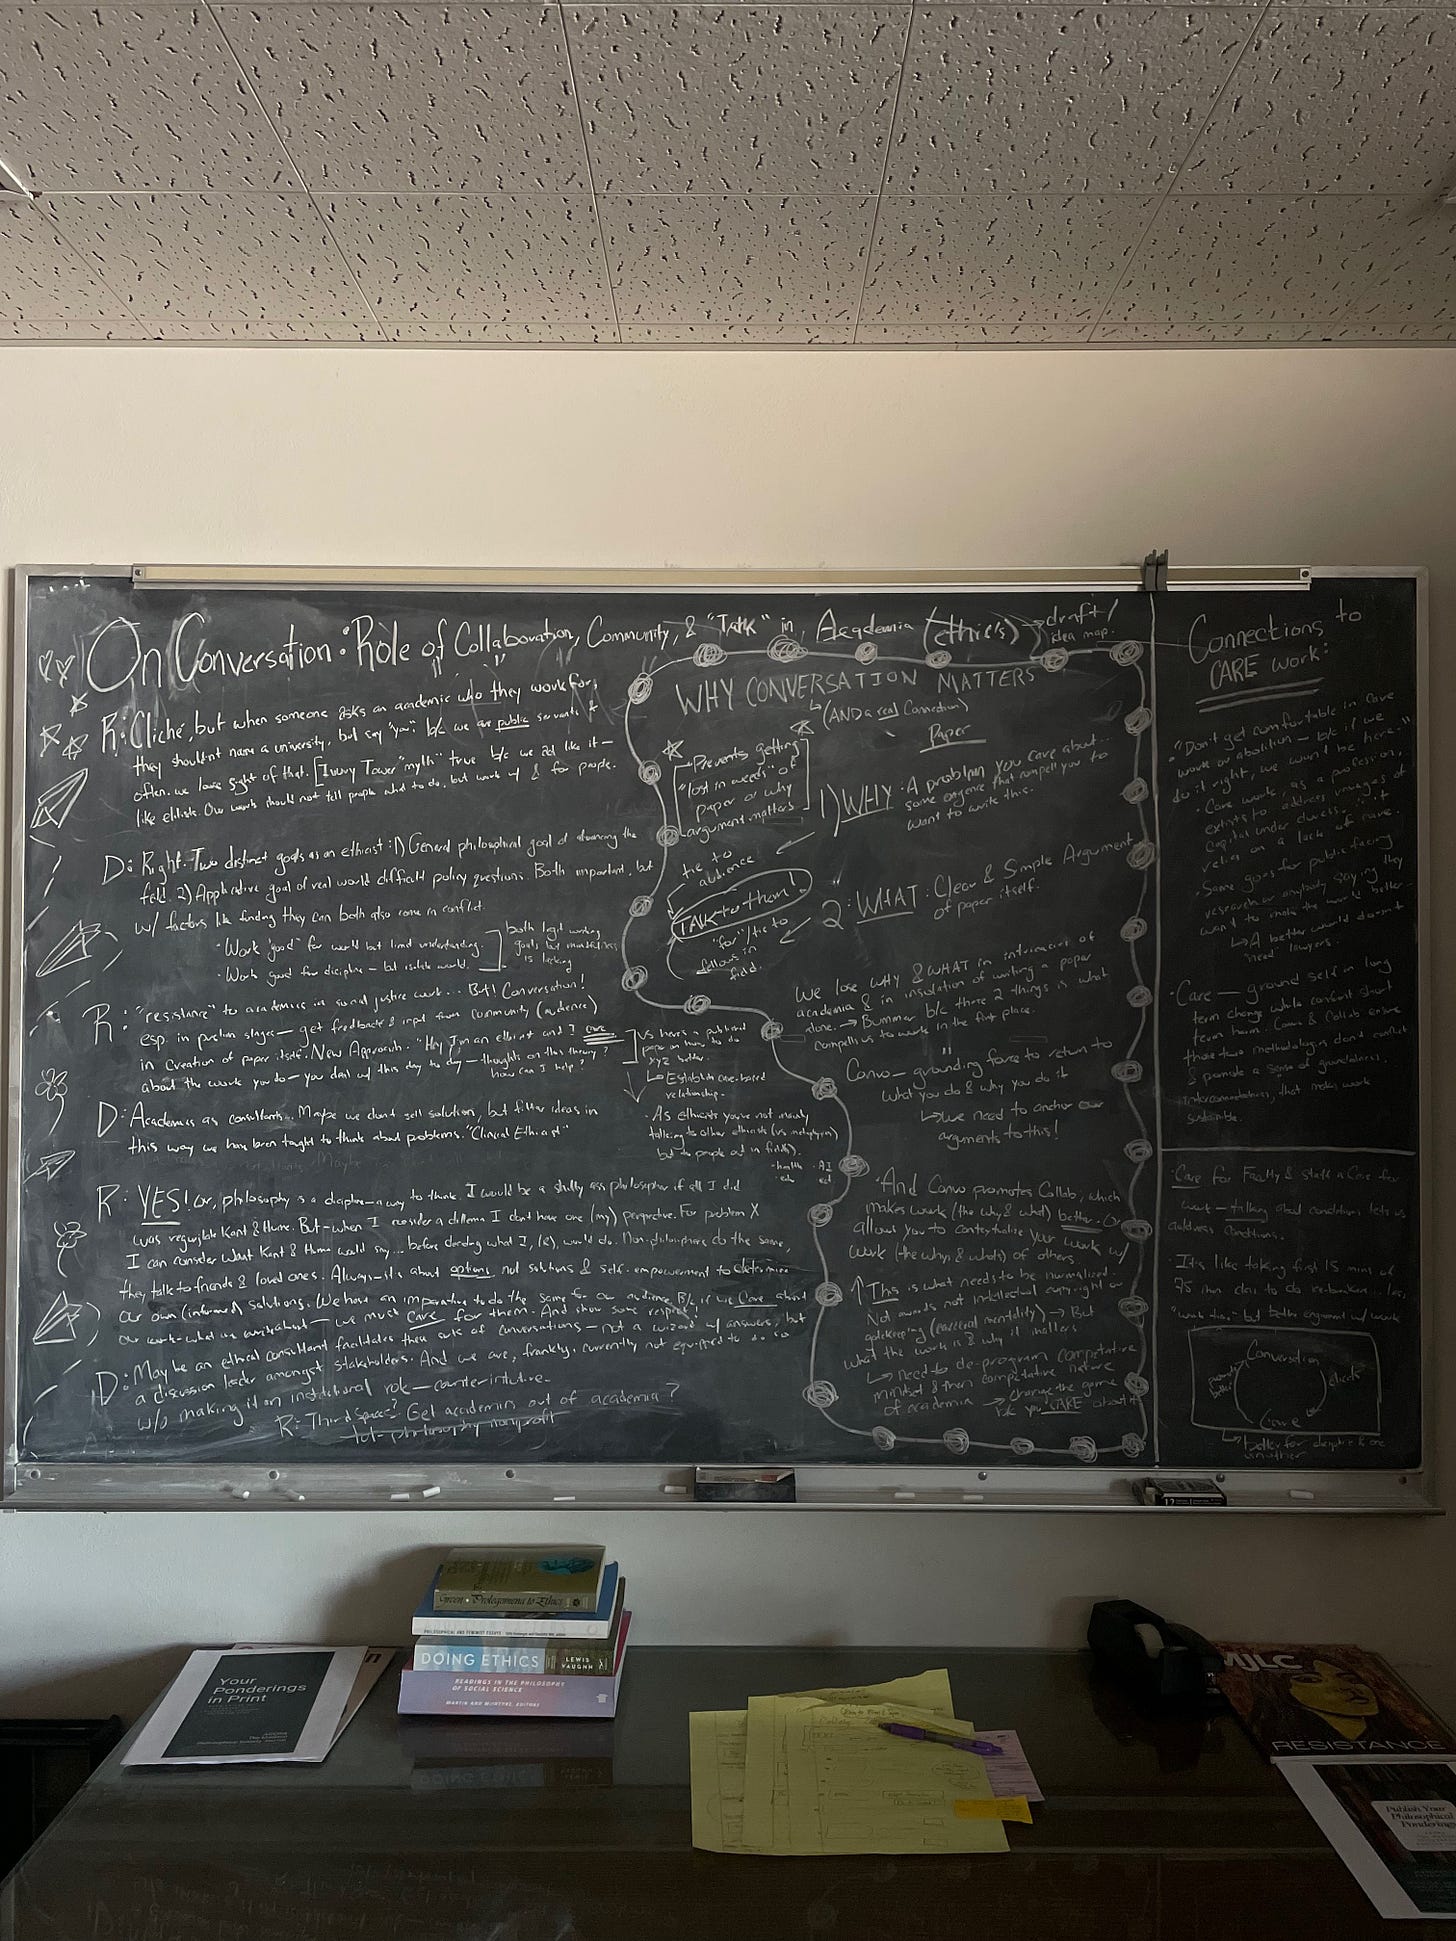 On Conversation: Role of Collaboration, Community, & "Talk" in Academia (ethic's) → draft/
idea map.
R: Cliché, but when someone asks an academic who they work for,
they shouldn't name a university, but say "you" b/c we are public servants &
often we lose sight of that. [Ivory Tower "myth" true b/c we act like it—
like elitists. Our work should not tell people what to do, but work w/ & for people.
D: Right. Two distinct goals as an ethicist: 1) General philosophical goal of advancing the
field. 2) Applicative goal of real world difficult policy questions. Both important, but
w/ factors like funding they can both also come in conflict.
• Work "good" for world but limit understanding.
• Work good for discipline — but isolate world.
both legit working
goals, but mindfulness
is lacking
R: "resistance" to academics in social justice work... But! Conversation!
esp. in prelim stages — get feedback & input from community (audience)
in creation of paper itself. New Approach: "Hey I'm an ethicist and I care
about the work you do — you deal w/ this day to day — thoughts on this theory?
How can I help?
vs here's a published
paper on how to do
xyz better.
↳ Establish care-based
relationship.
• As ethicists you're not merely
talking to other ethicists (vs metaphysics)
but to people out in field(s).
• health • AI
D: Academics as consultants... Maybe we don't sell solution, but filter ideas in
this way we have been taught to think about problems. "Clinical Ethicist"
R: YES! Or, philosophy is a discipline — a way to think. I would be a shitty ass philosopher if all I did
was regurgitate Kant & Hume. But — when I consider a dilemma I don't have one (my) perspective. For problem X
I can consider what Kant & Hume would say... before deciding what I, (R), would do. Non-philosophers do the same,
they talk to friends & loved ones. Always — it's about options, not solutions & self-empowerment to determine
our own (informed) solutions. We have an imperative to do the same for our audience. B/c if we care about
our work — what we write about — we must care for them. And show some respect!
D: Maybe an ethical consultant facilitates these sorts of conversations — not a wizard w/ answers, but
a discussion leader amongst stakeholders. And we are, frankly, currently not equipped to do so
w/o making it an institutional role — counter-intuitive.
R: Third Spaces? Get academics out of academia?
lol - philosophy nonprofit
WHY CONVERSATION MATTERS
↳ (AND a real Connection)
Paper
Prevents getting
"lost in weeds" of
paper or why
argument matters
1) WHY: A problem you care about...
some urgence that compell you to
want to write this.
tie to
audience
TALK to them!
"for"/tie to
fellows in
field.
2: WHAT: Clear & Simple Argument
of paper itself.
We lose WHY & WHAT in intricacies of
academia & in insolation of writing a paper
alone. → Bummer b/c there 2 things is what
compells us to work in the first place.
Convo — grounding force to return to
what you do & why you do it
↳ we need to anchor our
arguments to this!
And Convo promotes Collab, which
makes work (the why & what) better. Or
allows you to contextualize your work w/
work (the whys & whats) of others.
↑ This is what needs to be normalized.
Not awards not intellectual copyright or
gatekeeping (carceral mentality) → But
what the work is & why it matters
↳ need to de-program competative
mindset & then competative nature
of academia → change the game
b/c you CARE about it
Connections to
CARE work:
"Don't get comfortable in care
work or abolition — b/c if we
do it right, we won't be here."
• Care work, as a profession,
exists to address ravages of
capital under duress... "it
relies on a lack of care.
• Same goes for public facing
research or anybody saying they
want to make the world better—
↳ A better world doesn't
"need" lawyers.
• Care — ground self in long
term change while confront short
term harm. Convo & Collab ensure
those two methodologies don't conflict
& promote a sense of groundedness,
interconnectedness, that makes work
sustainable.
• Care for Faculty & staff & Care for
work — talking about conditions lets us
address conditions.
It's like taking first 15 mins of
75 min class to do icebreakers... less
"work time" but better engagement w/ work
Conversation
Care
↳ better for discipline & one
another
Green • Prolegomena to Ethics
PHILOSOPHICAL AND FEMINIST ESSAYS
DOING ETHICS
LEWIS
VAUGHN
READINGS IN THE PHILOSOPHY
OF SOCIAL SCIENCE
MARTIN AND MCINTYRE, EDITORS
Your
Ponderings
in Print
MJLC
RESISTANCE
Publish Your
Philosophical
Ponderings
12